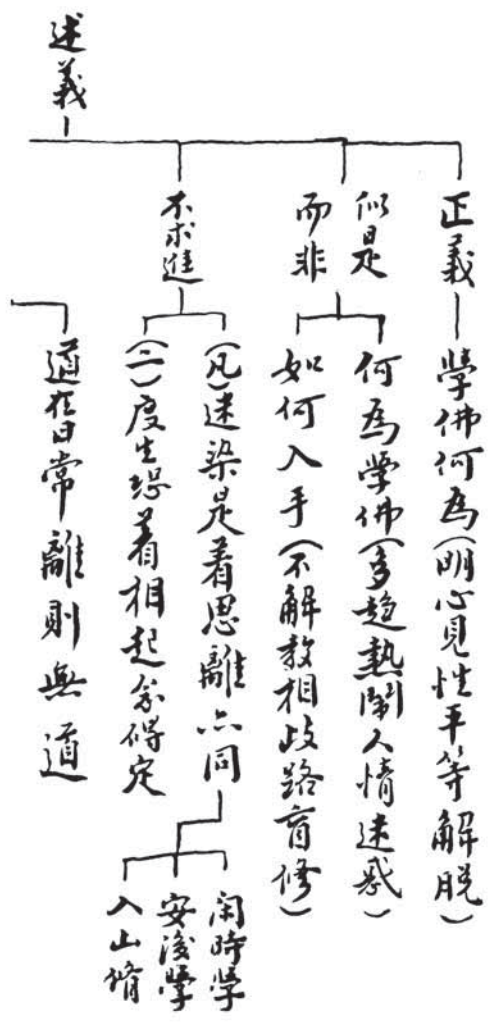 述義
正義
學佛何為(明心見性平等解脫)
似是
而非
何為學佛(多趨熱鬧人情迷惑)
如何入手(不解教相歧路盲修)
不求進
(凡)迷染是着思離亦同
閑時學
安後學
入山脩
(二)度生恐着相起念碍定
道在日常離則無道